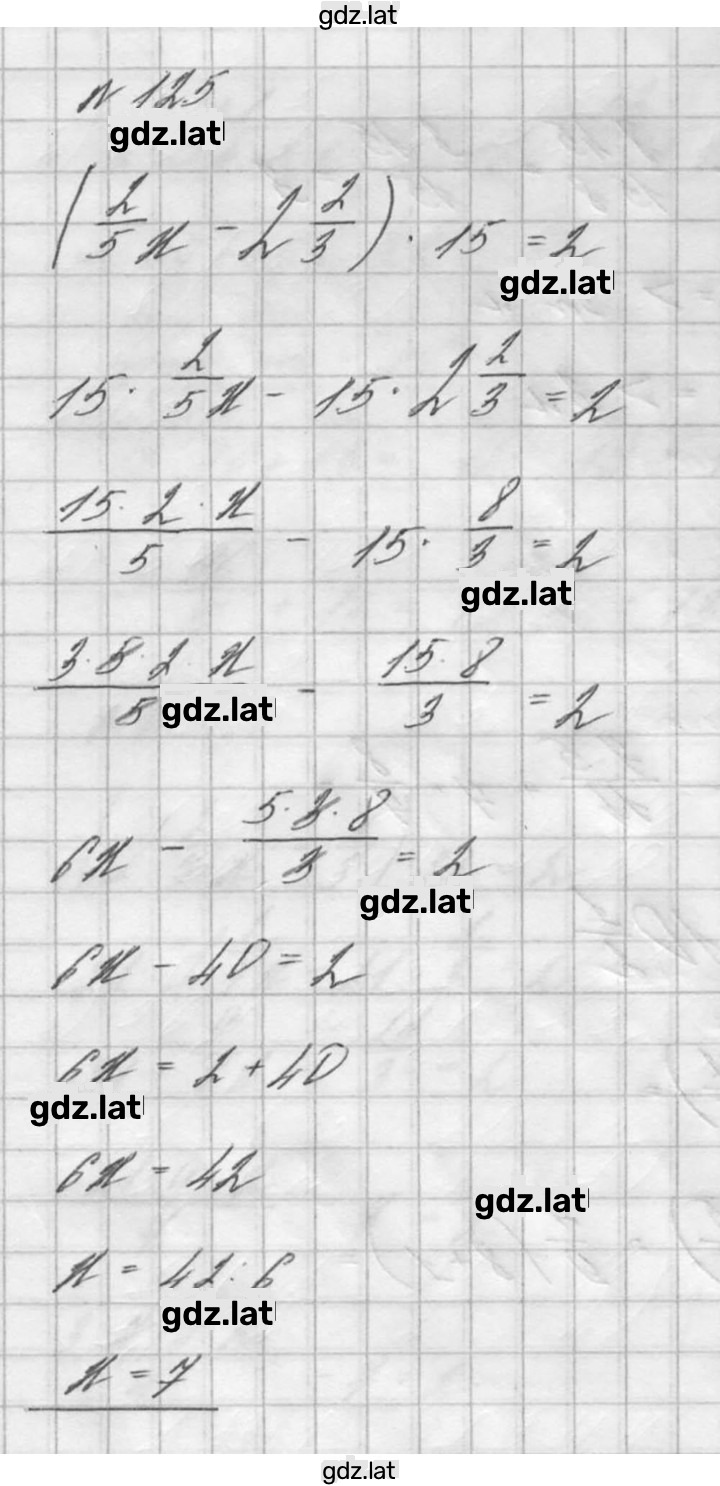 gdz.lat
№ 125
gdz.lat
(2/5 x - 2 2/3) · 15 = 2
gdz.lat
15 · 2/5 x - 15 · 2 2/3 = 2
15 · 2 · x / 5 - 15 · 8/3 = 2
gdz.lat
3 · 5 · 2 · x / 5 - 15 · 8 / 3 = 2
gdz.lat
6x - 5 · 3 · 8 / 3 = 2
gdz.lat
6x - 40 = 2
6x = 2 + 40
gdz.lat
6x = 42
gdz.lat
x = 42 : 6
gdz.lat
x = 7
gdz.lat